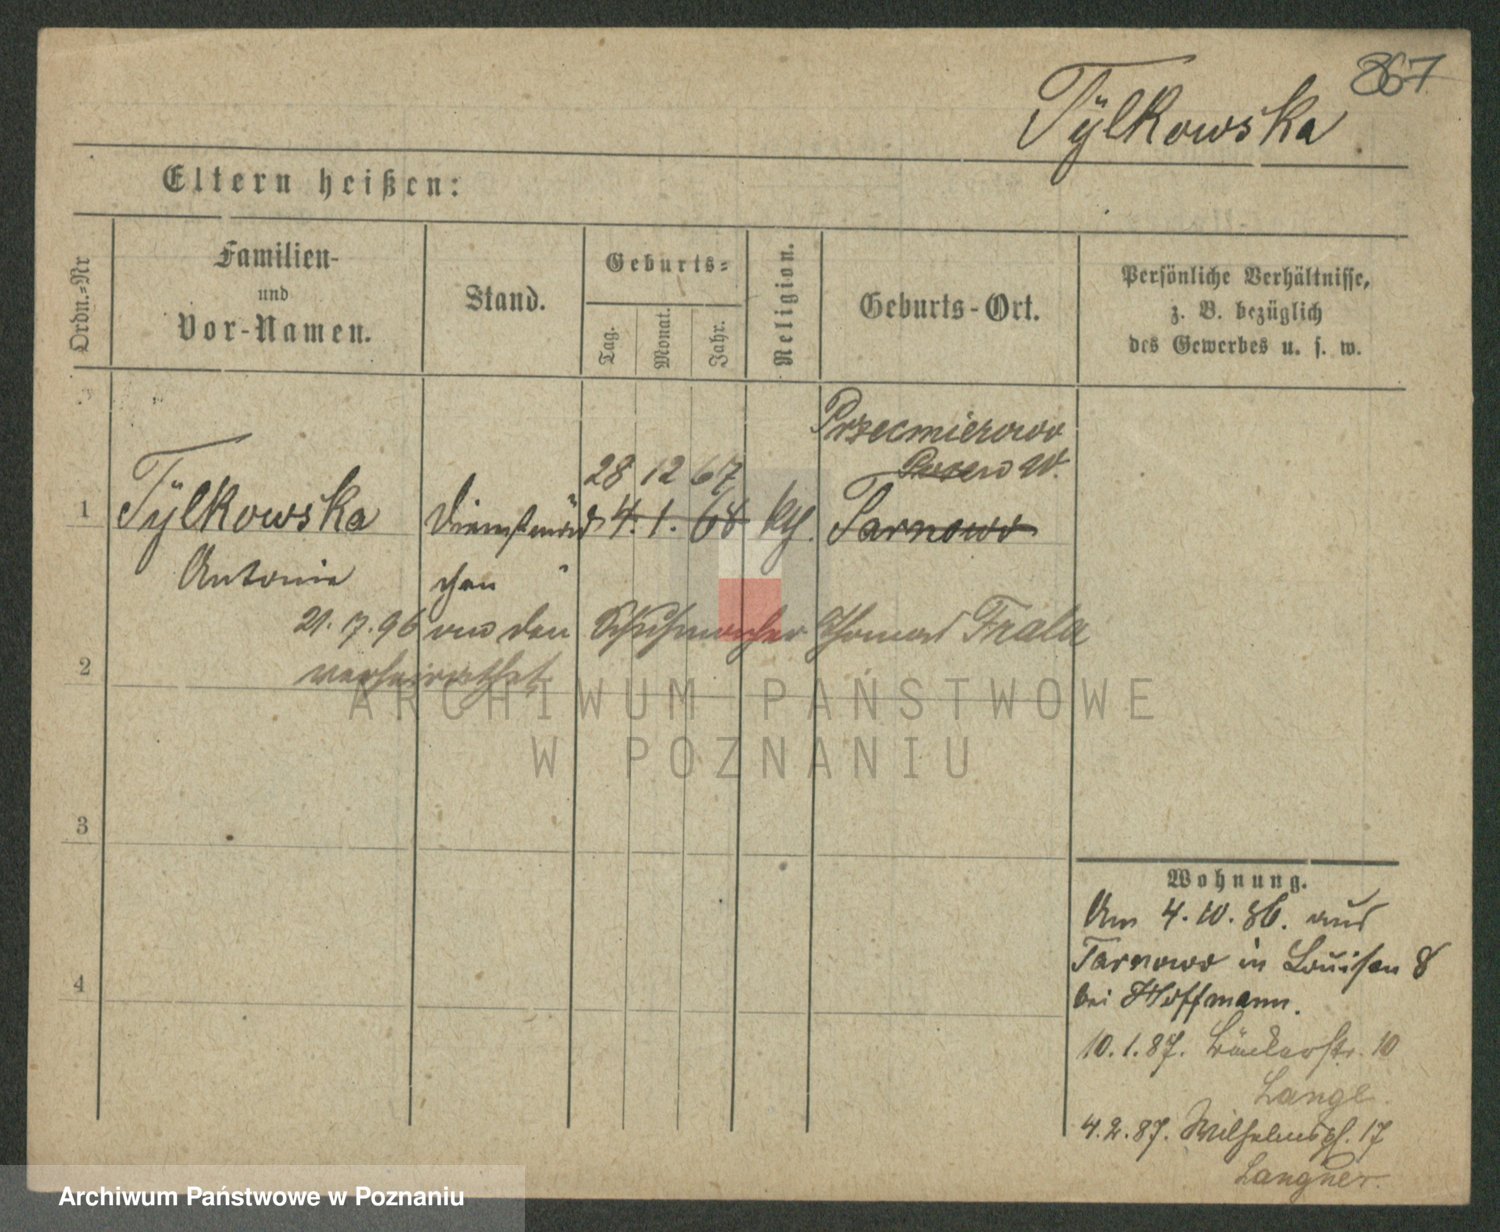 867
Tÿlkowska
Eltern heißen:
Ordn.-Nr
Familien-
und
Vor-Namen.
Stand.
Geburts-
Tag.
Monat.
Jahr.
Religion.
Geburts-Ort.
Persönliche Verhältnisse,
z. B. bezüglich
des Gewerbes u. s. w.
Przecmierowo
Posen W.
28 12 67
1 Tÿlkowska Dienstmäd 4. 1. 68 kth. Tarnowo
Antonie chen
21.7.96 den Schuhmacher Thomas Frala
verheirathet
2
3
4
Wohnung.
Am 4.10.86. aus
Tarnowo in Louisen 8
bei Hoffmann.
10.1.87. Bäckerstr. 10
Lange.
4.2.87. Wilhelmspl. 17
Langner.
ARCHIWUM PAŃSTWOWE
W POZNANIU
Archiwum Państwowe w Poznaniu